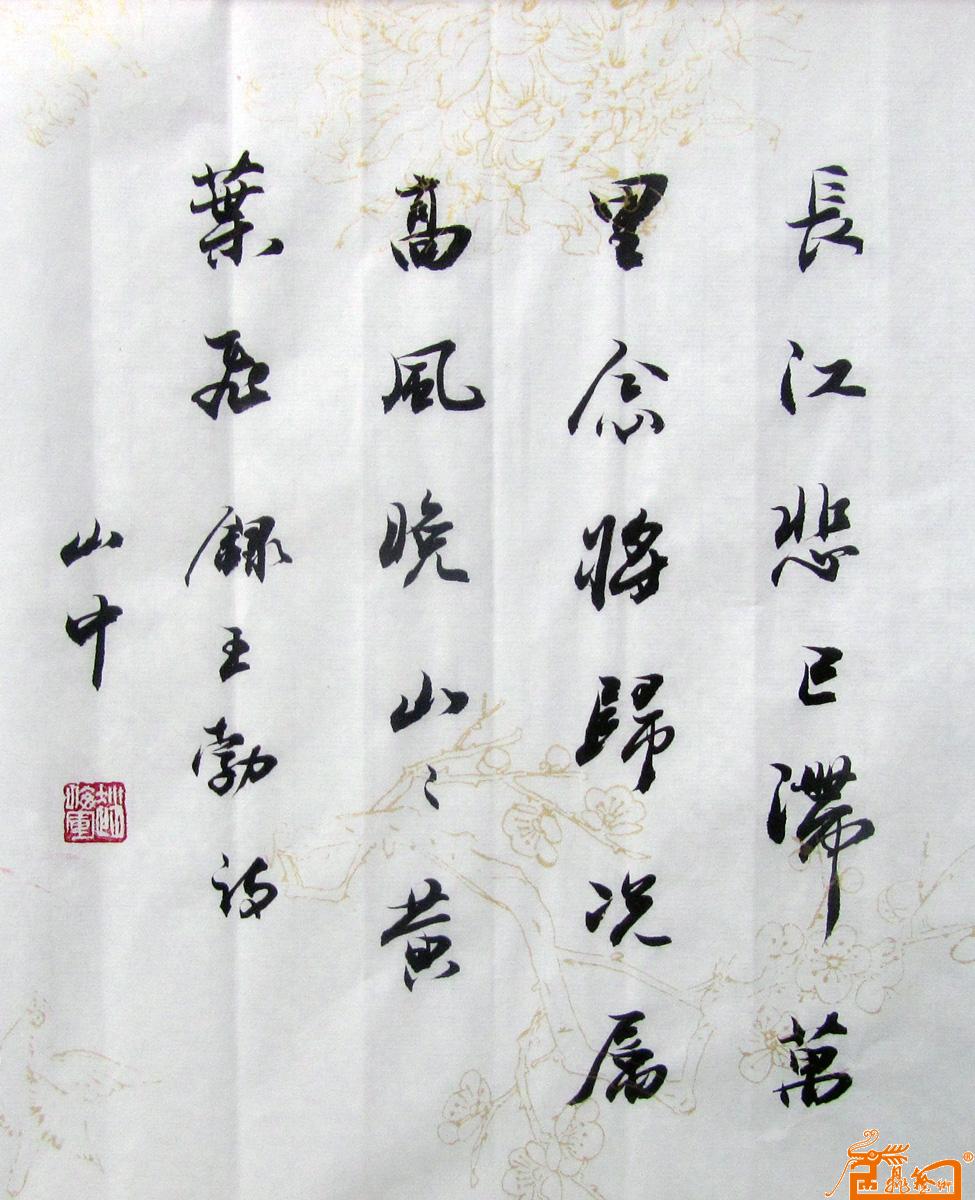 長江悲已滯萬
里念將歸況屬
高風晚山〻黃
葉飛錄王勃詩
山中